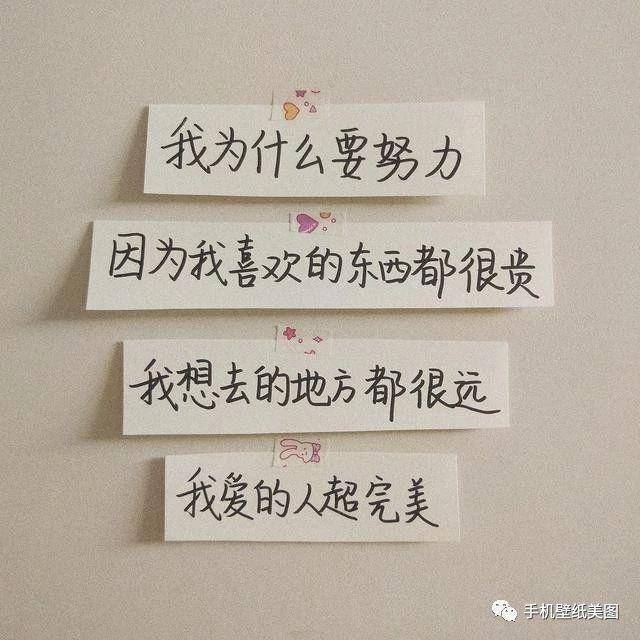 我为什么要努力
因为我喜欢的东西都很贵
我想去的地方都很远
我爱的人超完美
手机壁纸美图